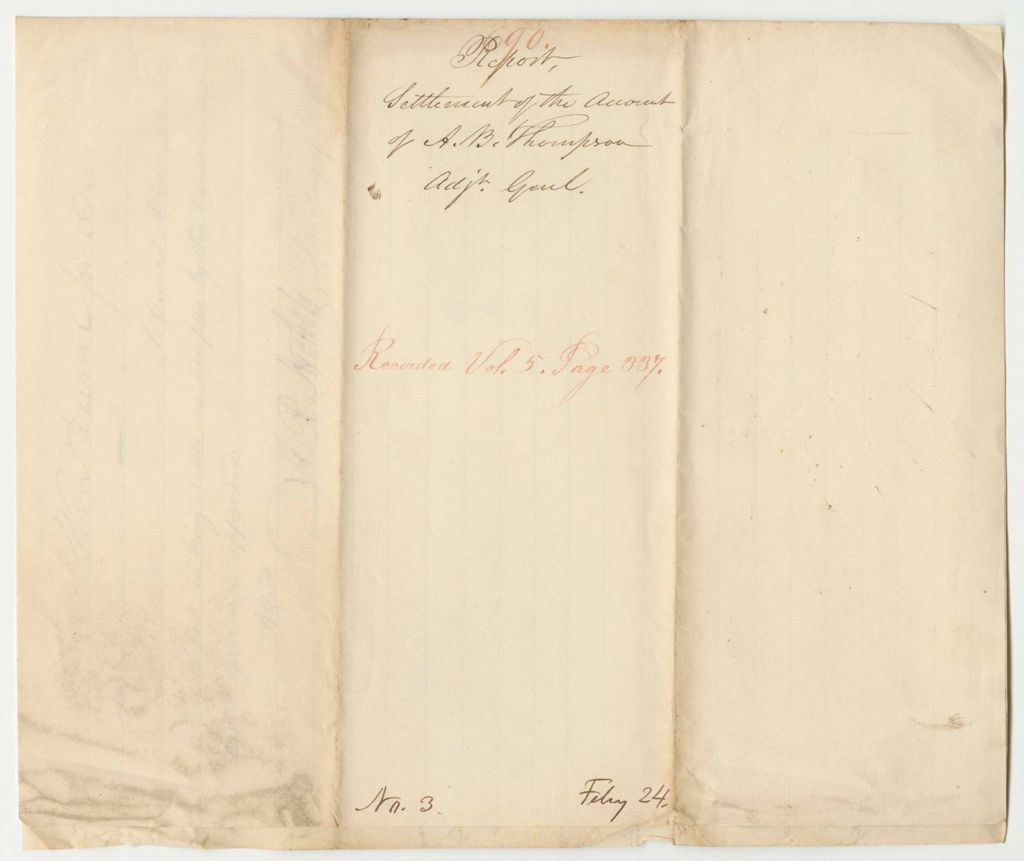 90.
Report,
Settlement of the Account
of A. B. Thompson
Adjt. Genl.
Recorded Vol. 5. Page 337.
No. 3.
Feby 24.